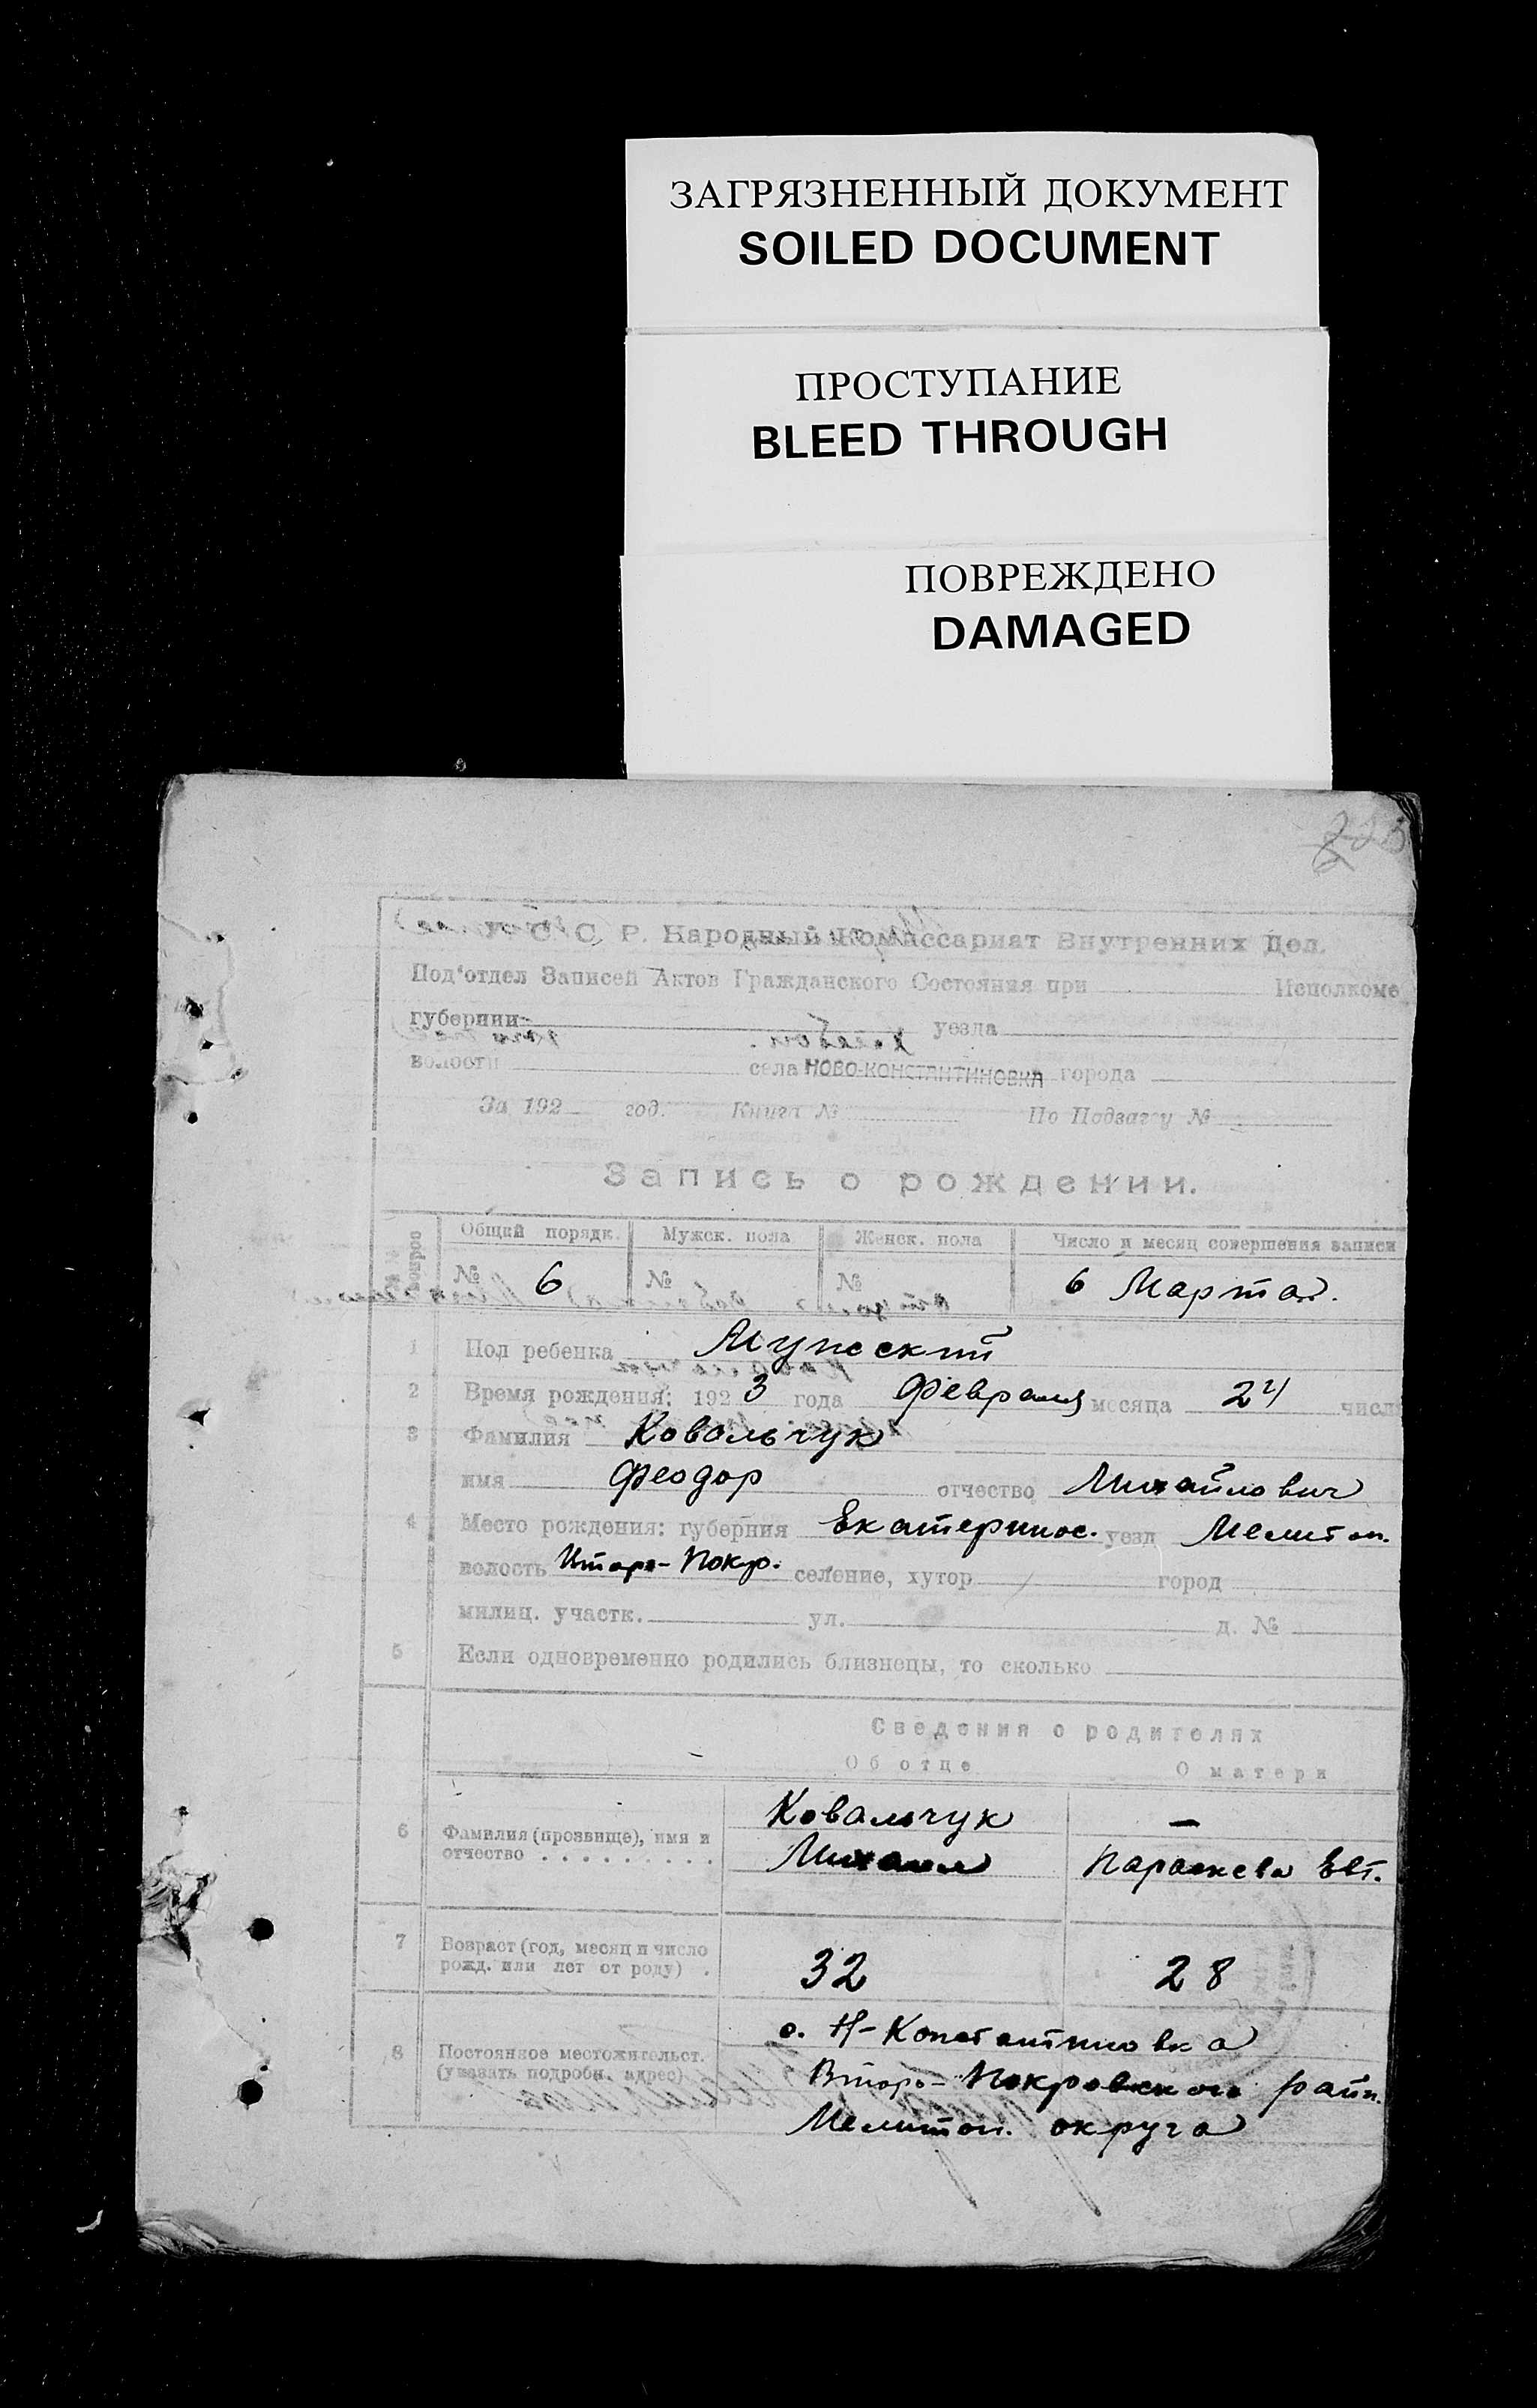 ЗАГРЯЗНЕННЫЙ ДОКУМЕНТ
SOILED DOCUMENT
ПРОСТУПАНИЕ
BLEED THROUGH
ПОВРЕЖДЕНО
DAMAGED
У. С. С. Р. Народный Комиссариат Внутренних Дел.
Под'отдел Записей Актов Гражданского Состояния при Исполкоме
губернии уезда
волости села НОВО-КОНСТАНТИНОВКА города
За 192 год. Книга № По Подзагсу №
Запись о рождении.
вопрос
Общий порядк. Мужск. пола Женск. пола Число и месяц совершения записи
№ 6 № № 6 Марта.
1 Пол ребенка Мужеский
2 Время рождения: 192 3 года Февраля месяца 24 числ
3 Фамилия Ковальчук
имя Феодор отчество Михайлович
4 Место рождения: губерния Екатеринос. уезд Мелитоп.
волость Втаро-Покр. селение, хутор город
милиц. участк. ул. д. №
5 Если одновременно родились близнецы, то сколько
Сведения о родителях
Об отце О матери
Ковальчук —
6 Фамилия (прозвище), имя и
отчество . . . . . . . . . Михаил Параскева Евт.
7 Возраст (год, месяц и число
рожд. или лет от роду) . 32 28
с. Н-Константиновка
8 Постоянное местожительст.
(указать подробн. адрес) Втаро-Покровского райн.
Мелитоп. округа